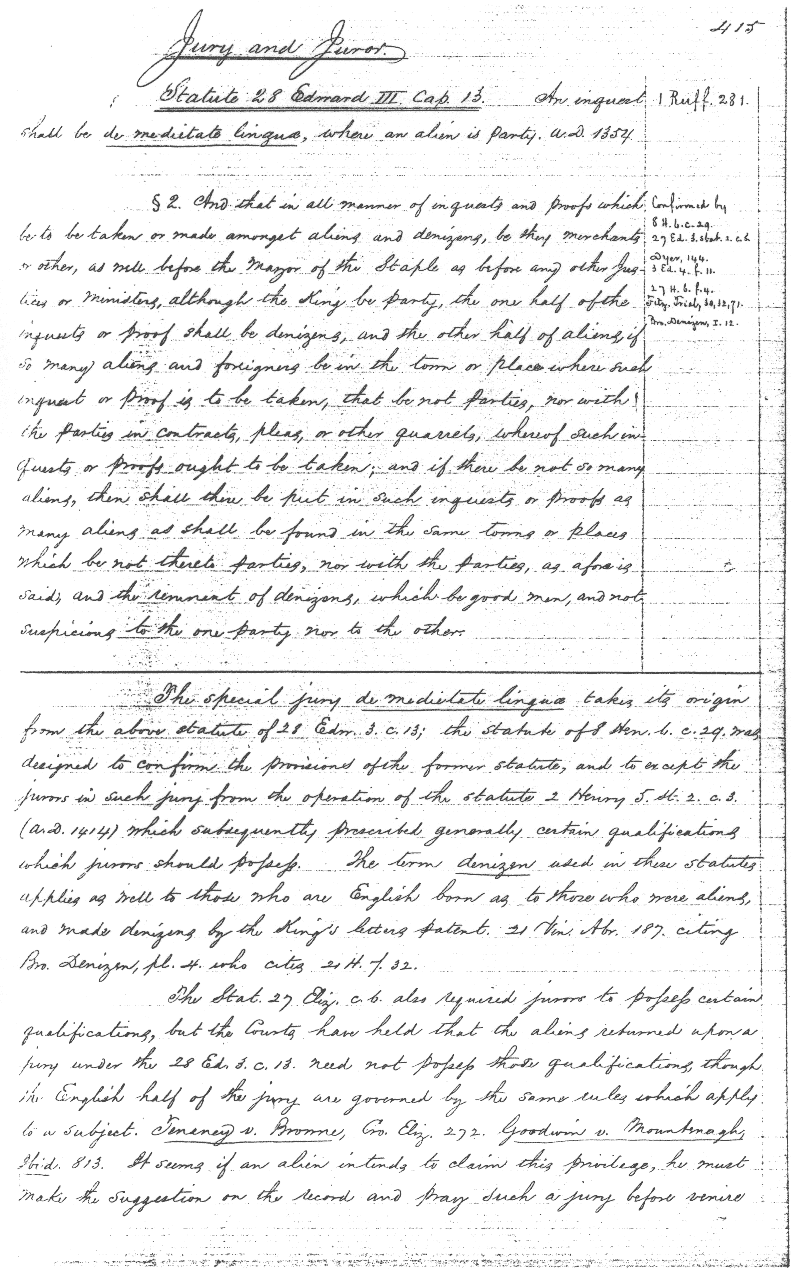 415
Jury and Juror.
Statute 28 Edward III Cap. 13. An inquest
shall be de medietate linguæ, where an alien is party. A.D. 1354
1 Ruff. 281.
§ 2. And that in all manner of inquests and proofs which
be to be taken or made amongst aliens and denizens, be they merchants
or other, as well before the Mayor of the Staple as before any other Jus-
tices or Ministers, although the King be party, the one half of the
inquests or proof shall be denizens, and the other half of aliens, if
so many aliens and foreigners be in the town or place where such
inquest or proof is to be taken, that be not parties, nor with
the parties in contracts, pleas, or other quarrels, whereof such in-
quests or proofs ought to be taken; and if there be not so many
aliens, then shall there be put in such inquests or proofs as
many aliens as shall be found in the same towns or places
which be not thereto parties, nor with the parties, as afore is
said; and the remnant of denizens, which be good men, and not
suspicious to the one party nor to the other.
Confirmed by
8 H. 6. c. 29.
27 Ed. 3. stat. 2. c. 8
Dyer, 144.
3 Ed. 4. f. 11.
27 H. 6. f. 4.
Fitz. Trial, 30, 32, 71.
Bro. Denizen, I. 12.
The special jury de medietate linguæ takes its origin
from the above statute of 28 Edw. 3. c. 13; the statute of 8 Hen. 6. c. 29. was
designed to confirm the provisions of the former statute, and to except the
jurors in such jury from the operation of the statute 2 Henry 5. st. 2. c. 3.
(A.D. 1414) which subsequently prescribed generally certain qualifications
which jurors should possess. The term denizen used in these statutes
applies as well to those who are English born as to those who were aliens,
and made denizens by the King's letters patent. 21 Vin. Abr. 187. citing
Bro. Denizen, pl. 4. who cites 21 H. 7. 32.
The Stat. 27 Eliz. c. 6. also required jurors to possess certain
qualifications, but the Courts have held that the aliens returned upon a
jury under the 28 Ed. 3. c. 13. need not possess those qualifications, though
the English half of the jury are governed by the same rules which apply
to a subject. v. Browne, Cro. Eliz. 272. Goodwin v.
Ibid. 813. It seems if an alien intends to claim this privilege, he must
make the suggestion on the record and pray such a jury before venire